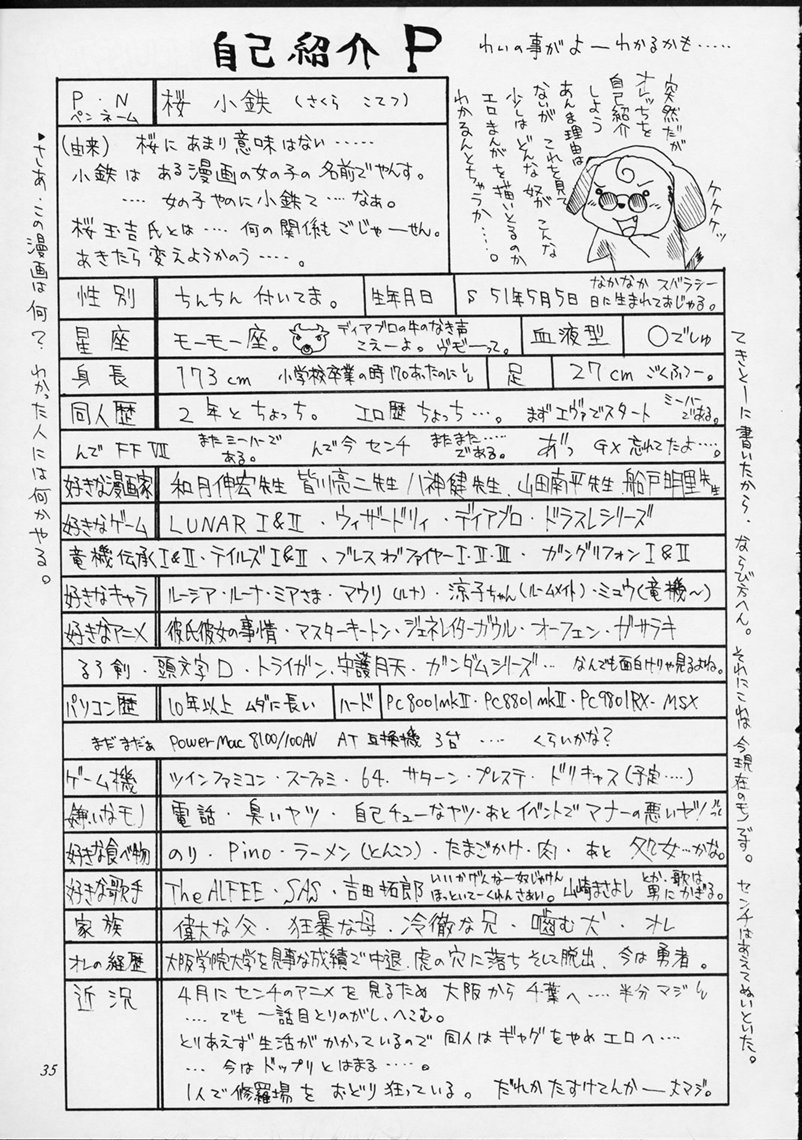 自己紹介 P
わいの事がよーわかるかも‥‥‥
突然だが
オレっちを
自己紹介
しよう
あんま理由は
ないが これを見て
少しはどんな奴が こんな
エロまんがを描いとるのか
わかるんとちゃうか‥‥。
ケケケッ
P.N
ペンネーム
桜 小鉄 (さくら こてつ)
(由来) 桜にあまり意味はない‥‥‥
小鉄は ある漫画の女の子の名前でやんす。
‥‥ 女の子やのに小鉄て‥‥なぁ。
桜玉吉氏とは‥‥ 何の関係もごじゃーせん。
あきたら変えようかのう‥‥‥。
♥さあ、この漫画は何? わかった人には何かやる。
性別
ちんちん 付いてま。
生年月日
S 51年5月5日
なかなか スバラシー
日に生まれておじゃる。
星座
モーモー座。
ディアブロの牛のなき声
こえーよ。ヴモーって。
血液型
○でしゅ
身長
173cm 小学校卒業の時170あったのに
足
27cm ごくふつー。
同人歴
2年とちょっち。 エロ歴ちょっち‥‥。 まずエヴァでスタート
ミーハー
である。
んで FF VII
またミーハーで
ある。
んで今 センチ
またまた‥‥
である。
あっ GX 忘れてたよ‥‥。
好きな漫画家
和月伸宏先生 皆川亮二先生 八神健先生、山田南平先生、船戸明里先生
好きなゲーム
LUNAR I&II・ウィザードリィ・ディアブロ・ドラスレシリーズ
竜機伝承I&II・テイルズI&II、ブレスオブファイヤーI・II・III・ガングリフォンI&II
好きなキャラ
ルーシア・ルーナ・ミアさま・マウリ(ルナ)・涼子ちゃん(ルームメイト)・ミュウ(竜機〜)
好きなアニメ
彼氏彼女の事情・マスターキートン・ジェネレイターガウル・オーフェン・ガサラキ
るろ剣・頭文字D・トライガン、守護月天・ガンダムシリーズ‥‥ なんでも面白けりゃ見るよね。
パソコン歴
10年以上 ムダに長い
ハード
PC8001mkII・PC8801mkII・PC9801RX・MSX
まだまだぁ Power Mac 8100/100AV AT互換機 3台 ‥‥ くらいかな?
ゲーム機
ツインファミコン・スーファミ・64、サターン・プレステ・ドリキャス(予定‥‥)
嫌いなモノ
電話・臭いヤツ・自己チューなヤツ・あとイベントでマナーの悪いヤツ!
好きな食べ物
のり・Pino・ラーメン(とんこつ)・たまごかけ・肉・あと 処女‥‥かな。
好きな歌手
The ALFEE・SAS・吉田拓郎
いいかげんなー奴じゃけん
ほっといてーくれんさぁい。
山崎まさよし
とか、歌は
男にかぎる。
家族
偉大な父・狂暴な母・冷徹な兄・噛む犬・オレ
オレの経歴
大阪学院大学を見事な成績で中退、虎の穴に落ちそして脱出、今は勇者。
近況
4月にセンチのアニメを見るため 大阪から千葉へ‥‥ 半分マジ
‥‥ でも 一話目とりのがし、へこむ。
とりあえず生活がかかっているので 同人はギャグをやめエロへ‥‥
‥‥ 今はドップリとはまる‥‥‥。
1人で修羅場を おどり狂っている。 だれかたすけてんかー大マジ。
てきとーに書いたから、ならび方へん。それにこれは今現在のモンです。センチはあえてぬいといた。
35